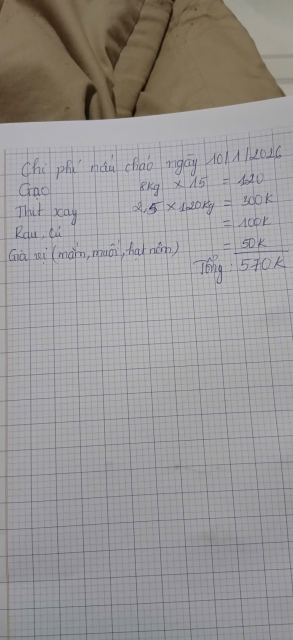 Chi phí nấu cháo ngày 10/1/2026
Gạo 8kg × 15 = 120
Thịt xay 2,5 × 120kg = 300k
Rau, củ = 100k
Gia vị (mắm, muối, hạt nêm) = 50k
Tổng: 570k